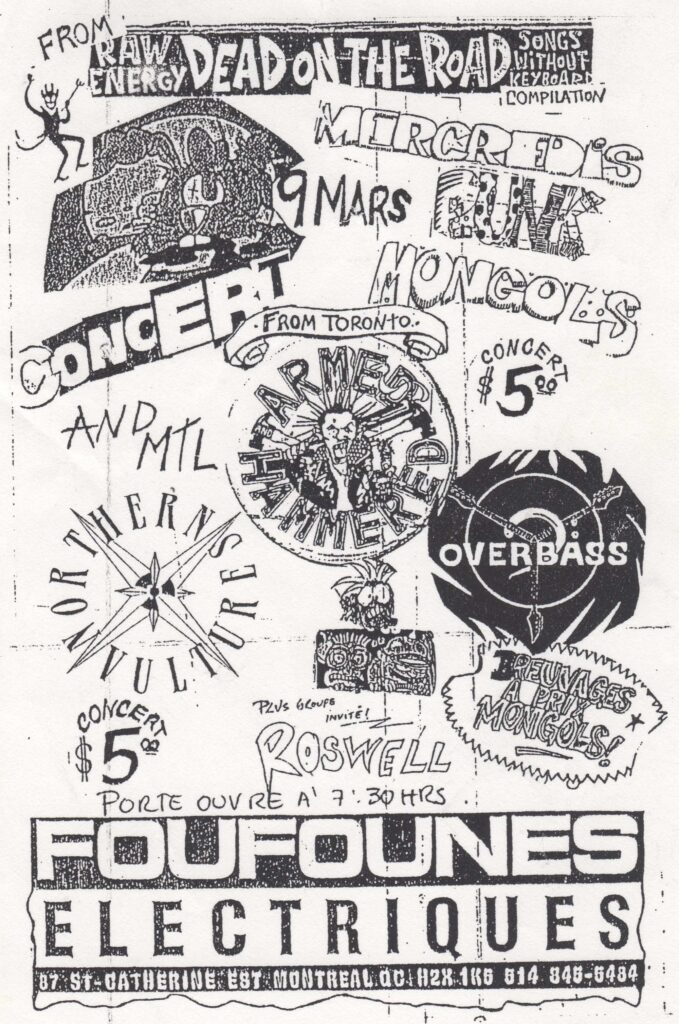 FROM
RAW ENERGY
DEAD ON THE ROAD
SONGS WITHOUT KEYBOARD
COMPILATION
MERCREDIS
PUNK
MONGOLS
9 MARS
CONCERT
CONCERT
$5.00
FROM TORONTO..
ARMED AND HAMMERED
AND MTL
NORTHERN VULTURES
OVERBASS
BREUVAGES
À PRIX
MONGOLS!
PLUS GROUPE
INVITÉ!
ROSWELL
CONCERT
$5
PORTE OUVRE A' 7:30 HRS.
FOUFOUNES
ELECTRIQUES
87 ST-CATHERINE EST MONTREAL QC. H2X 1K5 514 845-5484